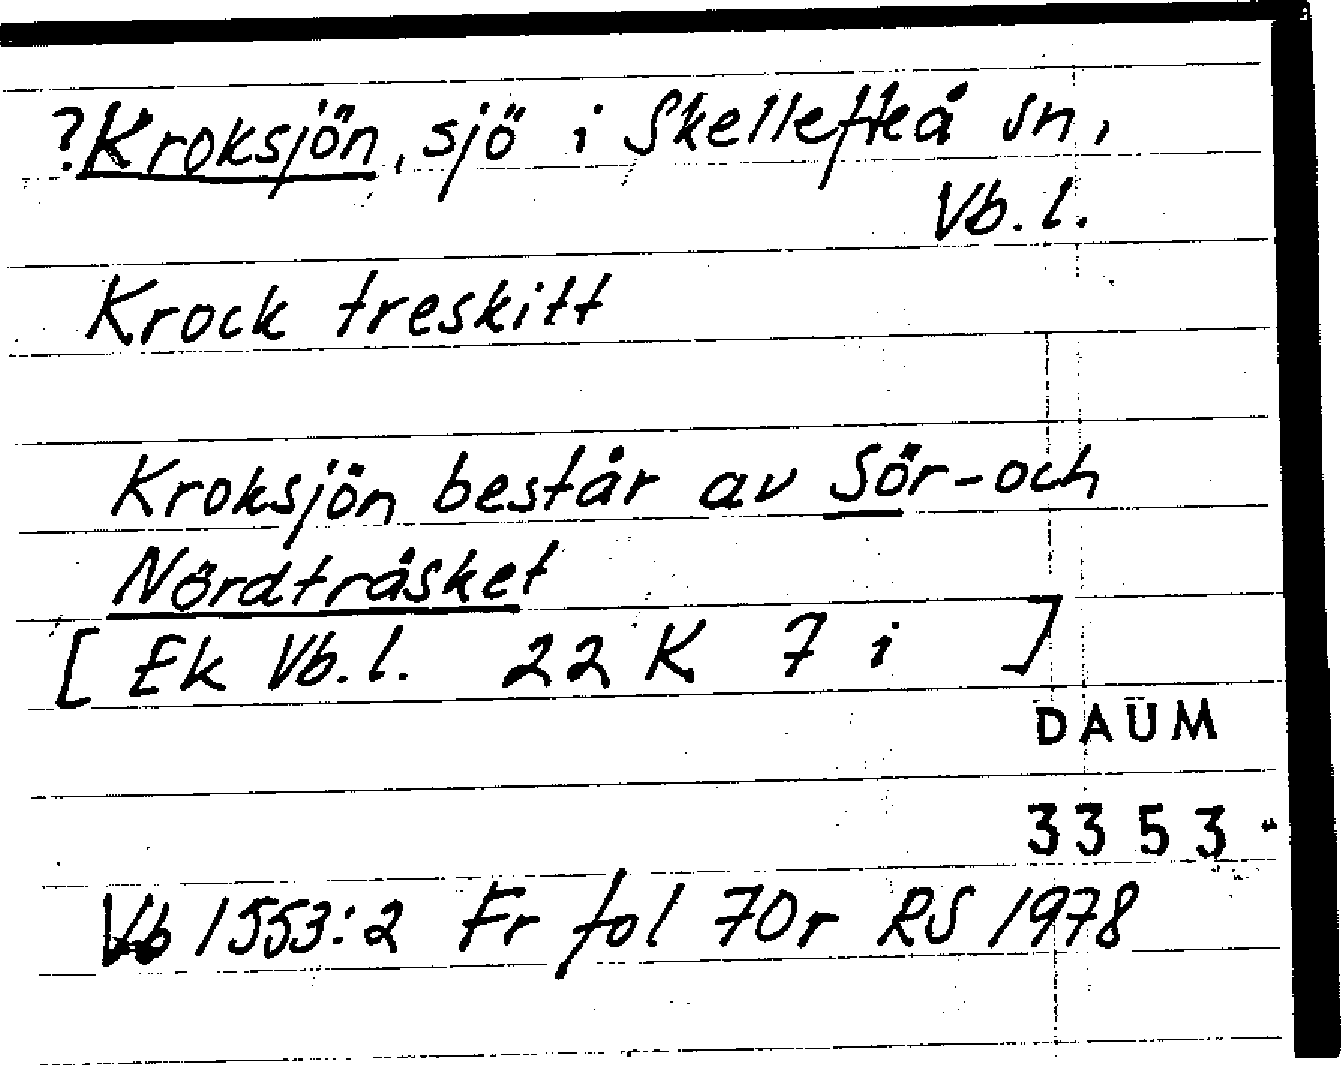 ?Kroksjön, sjö i Skellefteå sn,
Vb. l.
Krock treskitt
Kroksjön består av Sör- och
Nördtråsket
[ Ek Vb. l. 22 K 7 i ]
DAUM
3353
Vb 1553:2 Fr fol 70r RS 1978